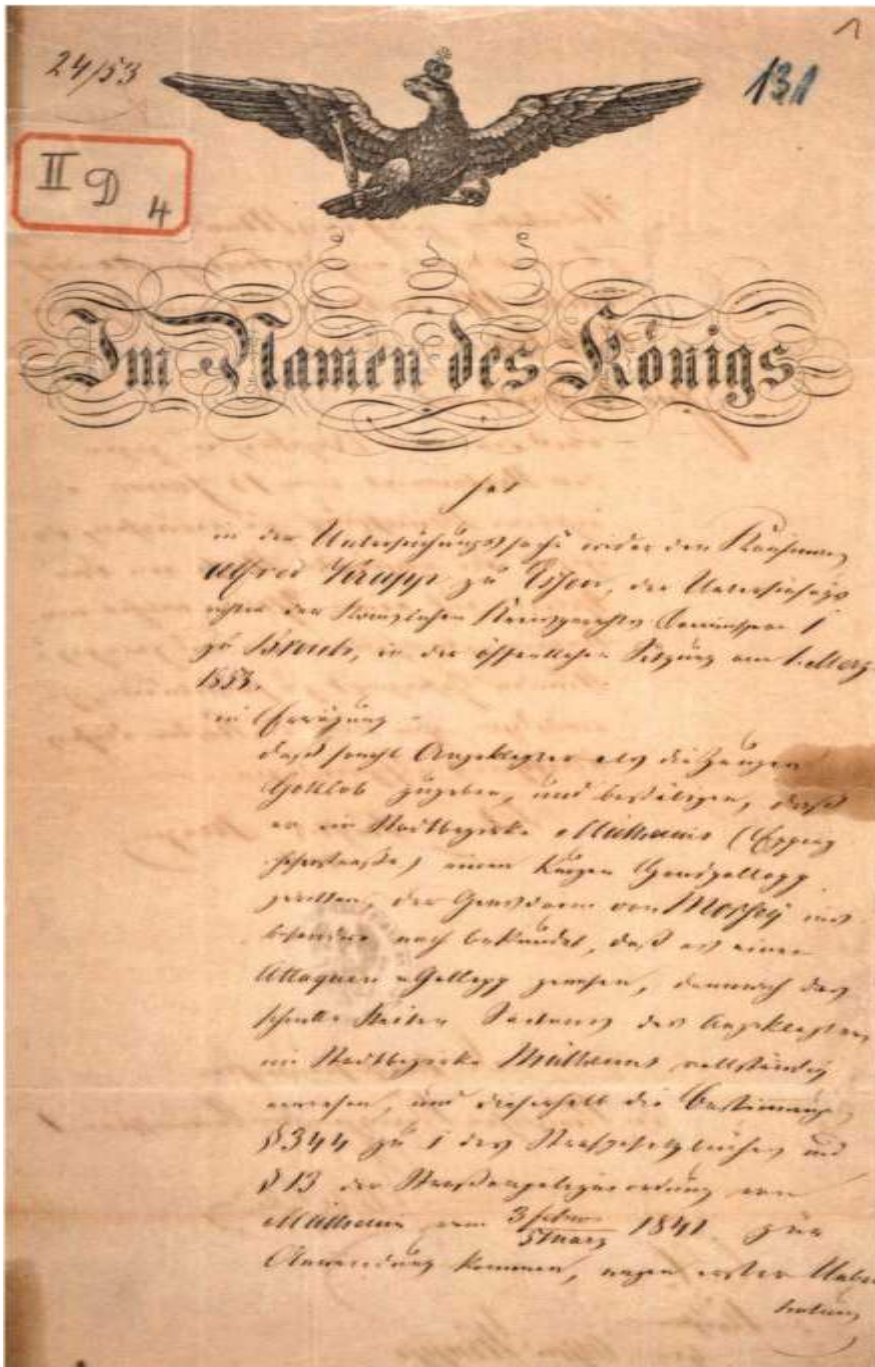 24/53
131
1
II D 4
Im Namen des Königs
hat
in der Untersuchungssache wider den Kaufmann
Alfred Krupp zu Essen, der Untersuchungs
richter der Königlichen Kreisgerichts Commission I
zu Broich, in der öffentlichen Sitzung vom 1. Merz
1853.
in Erwägung
daß sowohl Angeklagter als die Zeugen
Gottlob zugeben, und bestätigen, daß
er im Stadtbezirke Mülheim (Epping
hoferstraße) einen kurzen
geritten, der Gensdarm von
besonders noch bekundet, daß es einen
Attaquen Gallopp gewesen, demnach das
schnelle Reiten Seitens des Angeklagten
im Stadtbezirke Mülheim vollständig
erwiesen, und dieserhalb die Bestimmung
§ 344 zu 1 des Strafgesetzbuches und
§ 13 der Straßenpolizeiordnung von
Mülheim vom 3 Febr. / 5 März 1841. zur
Anwendung kommen, wegen erster Ueber
tretung